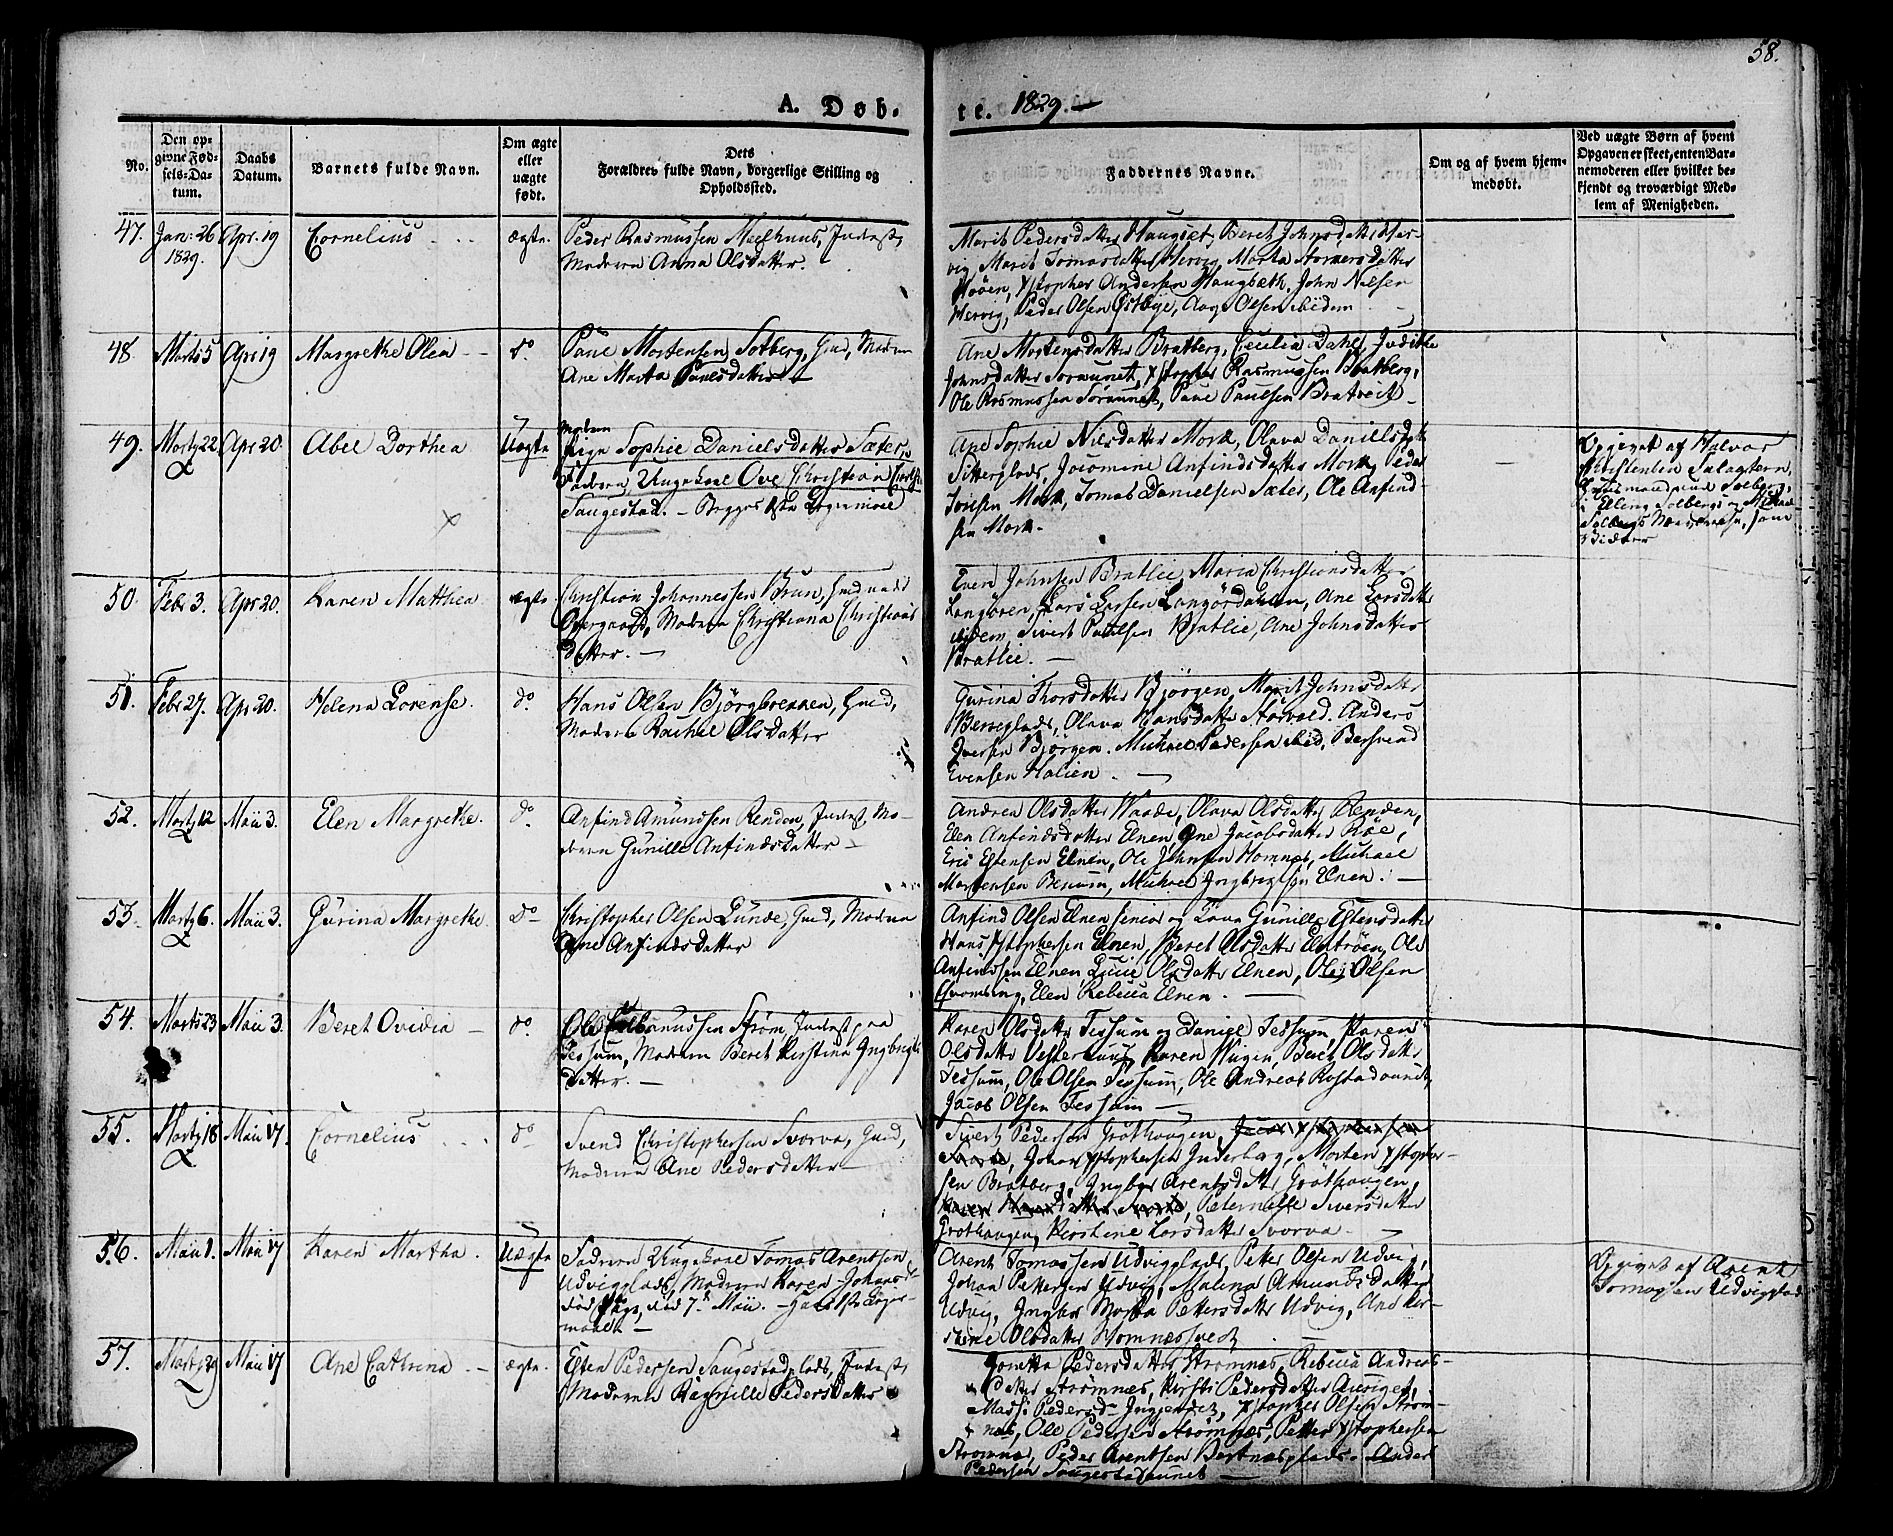 58.
A. Døb-
te. 1829.
No.
Den op-
givne Fød-
sels-Da-
tum.
Daabs
Datum.
Barnets fulde Navn.
Om ægte
eller
uægte
født.
Dets
Forældres fulde Navn, borgerlige Stilling og
Opholdssted.
Faddernes Navne.
Om og af hvem hjem-
medøbt.
Ved uægte Børn af hvem
Opgaven er skeet, enten Bar-
nemoderen eller hvilket be-
kjendt og troværdigt Med-
lem af Menigheden.
47. Jan: 26 Apr. 19 Cornelius ægte. Peder Rasmussen Meelhuus, Inderst,
1829. Moderen Anna Olsdatter.
Marit Pedersdatter Haugset, Beret Johnsdatter Her-
vig, Marit Tomasdatter Hervig, Marta
Xstopher Andersen Haugseth, John Nilsen
Hervig, Peder Olsen Østbye, Aage Olsen ibidem
48. Marts 5 Apr 19 Margrethe Olea do Paul Mortensen Solberg, Gmd, Moderen
Ane Marta Paulsdatter
Ane Mortensdatter Bratberg, Cecilia Dahl, Judithe
Johnsdatter Søraunet, Xstopher Rasmussen Bratberg,
Ole Rasmussen Søraunet, Paul Paulsen Bratreit
49. Marts 22 Apr 20. Abel Dorthea Uægte Moderen
Pige Sophie Danielsdatter Sæter,
Faderen, Ungekarl Ove Christian
Saugestad. - Begges 1ste Leiermaal
Ane Sophie Nilsdatter Mork, Olava Danielsdatter
Sitterplads, Jacomine Anfindsdatter Mork, Peder
Mork, Tomas Danielsen Sæter, Ole Anfind-
sen Mork.
Opgivet af Halvor
Christensen
Solberg,
Elling Solberg og
Solbergs
50. Febr 3. Apr 20. Karen Matthea ægte Christian Johannessen Brun, Gmd
Overgaard, Moderen Christiana Christians
datter.
Even Johnsen Bratlie, Maria Christiansdatter
Langøren, Lars Larsen Langørdahlen, Ane Larsdatter
ibidem, Sivert Paulsen Bratlie, Ane Johnsdatter
Bratlie.
51. Febr 27. Apr 20. Helena Lorense. do Hans Olsen Bjørgbrekken, Gmd,
Moderen Rachel Olsdatter
Gurina Thorsdatter Bjørgen, Marit Johnsdatter
Olava Hansdatter Storvold. Anders
Iversen Bjørgen. Michael Pedersen ibid, Bersvend
Evensen Halien.
52. Marts 12 Maii 3. Elen Margrethe. do Anfind Amundsen Renden, Inderst, Mo-
deren Gunille Anfindsdatter
Andrea Olsdatter Waade, Olava Olsdatter Renden,
Elen Anfindsdatter Elnen, Ane Jacobsdatter Røe,
Eric Estensen Elnen, Ole Johnsen Homnes, Michael
Mortensen Michael Ingbrigtsen Elnen.
53. Marts 6. Maii 3. Gurina Margrethe do Christopher Olsen Lunde, Gmd, Moderen
Ane Anfindsdatter
Anfind Olsen Elnen senior og Kona Gunille Estensdatter
Hans Xstophersen Elnen, Beret Olsdatter Elstrøen, Ole
Anfindsen Elnen Lucie Olsdatter Elnen, Ole Olsen
Elen Rebecca Elnen.
54. Marts 23 Maii 3. Beret Ovidia do Ole Strøm, Inderst paa
Tessum, Moderen Beret Kirstina Ingbrigts
datter.
Karen Olsdatter Tessum og Daniel Tessum, Karen
Olsdatter Karen Wugen, Beret Olsdatter
Tessum, Ole Olsen Tessum, Ole Andreas Rostadaunet,
Jacob Olsen Tessum
55. Marts 18 Maii 17. Cornelius do Svend Christophersen Svorva, Gmd,
Moderen Ane Pedersdatter
Sivert Pedersen Grøthaugen,
Johan Xstophersen Inderhaug, Morten Xstopher-
sen Bratberg, Ingbor Arentsdatter Grøthaugen,
Peternille Siversdatter
Grøthaugen, Kirstine Larsdatter Svorva
56. Maii 1. Maii 17 Karen Martha. Uægte Faderen Ungekarl Tomas Arentsen
Udvigplads, Moderen Karen Johans-
død 7de Maii.
Arent Tomassen Udvigplads, Peter Olsen Udvig,
Johan Pettersen Udvig, Malena Amundsdatter
Udvig, Ingbor Marta Pettersdatter Udvig, Ane Kir-
stine Olsdatter Homnes
Opgivet af Arent
Tomassen Udvigplads
57. Marts 29 Maii 17 Ane Cathrina ægte. Esten Pedersen Saugestadplads, Inderst,
Moderen Ragnille Pedersdatter
Joretta Pedersdatter Strømnes, Rebecca Andreas-
datter Strømnes, Kirsti Pedersdatter
Massi Pedersdr Xstopher Olsen Strøm-
nes, Ole Pedersen Strømnes, Petter Xstophersen
Strømnes, Peder Arentsen Anders
Pedersen Saugestadaunet